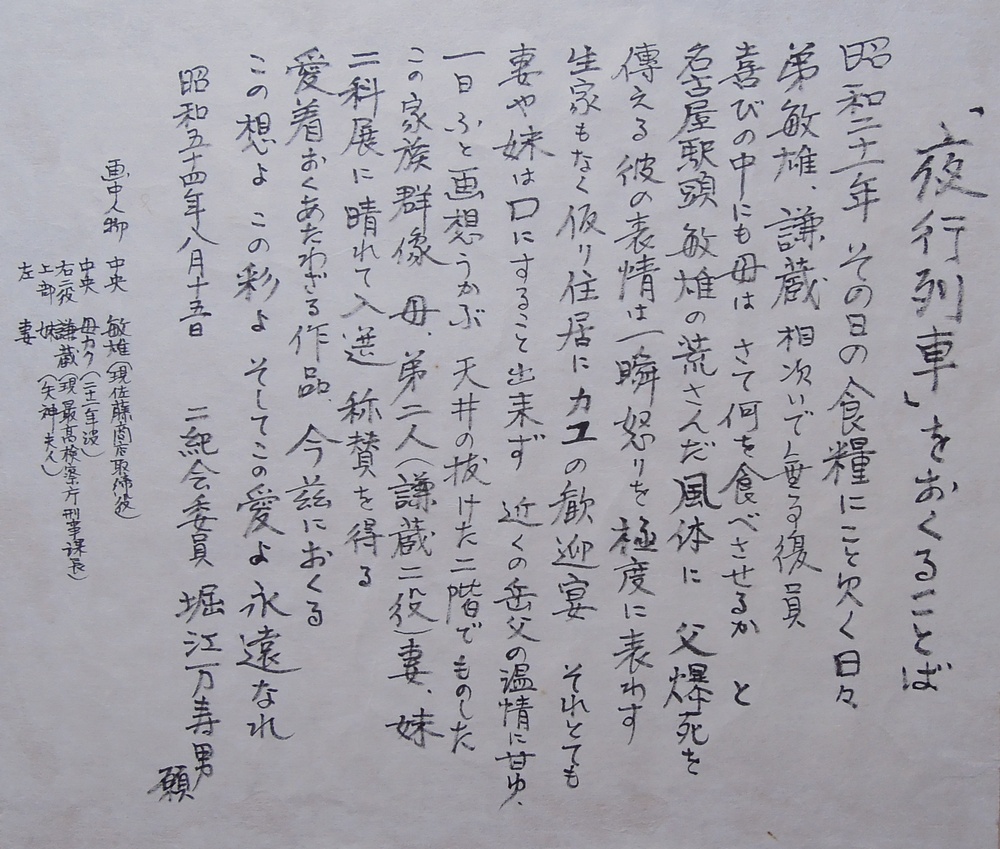 「夜行列車」をおくることば
昭和二十一年 その日の食糧にこと欠く日々
弟敏雄、謙蔵 相次いで無事復員
喜びの中にも母は さて何を食べさせるか と
名古屋駅頭 敏雄の荒さんだ風体に 父爆死を
傳える彼の表情は一瞬怒りを極度に表わす
生家もなく仮り住居にカユの歓迎宴 それとても
妻や妹は口にすること出来ず 近くの岳父の温情に甘ゆ、
一日ふと画想うかぶ 天井の抜けた二階でものした
この家族群像 母、弟二人(謙蔵二役)妻、妹
二科展に晴れて入選 称賛を得る
愛着おくあたわざる作品、今茲におくる
この想よ この彩よ そしてこの愛よ 永遠なれ
昭和五十四年八月十五日 二紀会委員 堀江万寿男
願
画中人物 中央 敏雄(現佐藤商店取締役)
中央 母カク(二十二年没)
右二役 謙蔵(現最高検察庁刑事課長)
上部 妹(矢神夫人)
左 妻